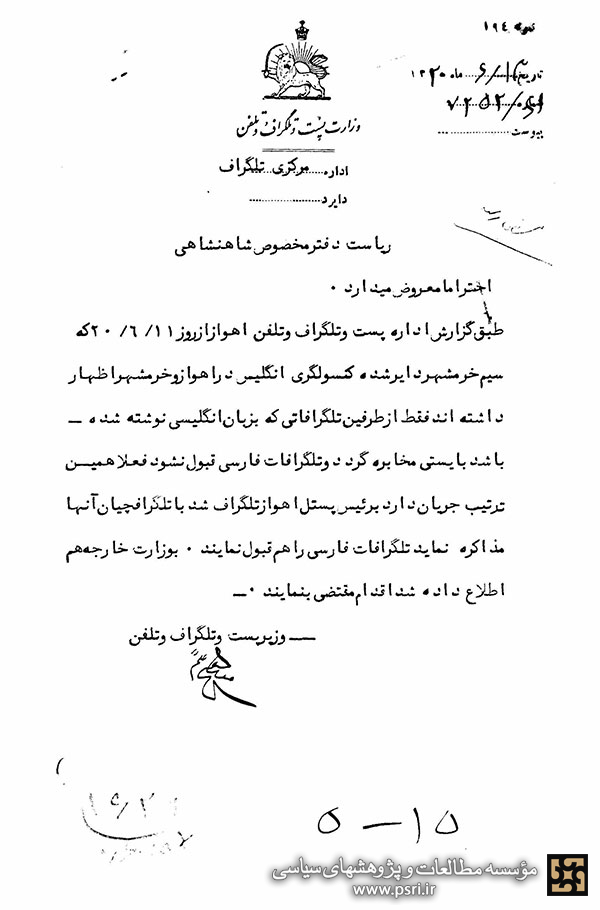 نمره ۱۹۴
تاریخ ۶/۱۳ ماه ۱۳۲۰
وزارت پست و تلگراف و تلفن
پیوست
اداره مرکزی تلگراف
دایره
ریاست دفتر مخصوص شاهنشاهی
احتراما معروض میدارد ۰
طبق گزارش اداره پست وتلگراف وتلفن اهواز از روز ۱۱/ ۶/ ۲۰ که
سیم خرمشهر دایر شده کنسولگری انگلیس در اهواز و خرمشهر اظهار
داشته اند فقط از طرفین تلگرافاتی که بزبان انگلیسی نوشته شده ــ
باشد بایستی مخابره گردد وتلگرافات فارسی قبول نشود فعلا همین
ترتیب جریان دارد برئیس پستل اهواز تلگراف شد با تلگرافچیان آنها
مذاکره نماید تلگرافات فارسی را هم قبول نمایند ۰ بوزارت خارجه هم
اطلاع داده شد اقدام مقتضی بنمایند ۰ــ
ــ وزیر پست وتلگراف وتلفن
۱۵ – ۵
مؤسسه مطالعات و پژوهشهای سیاسی
www.psri.ir